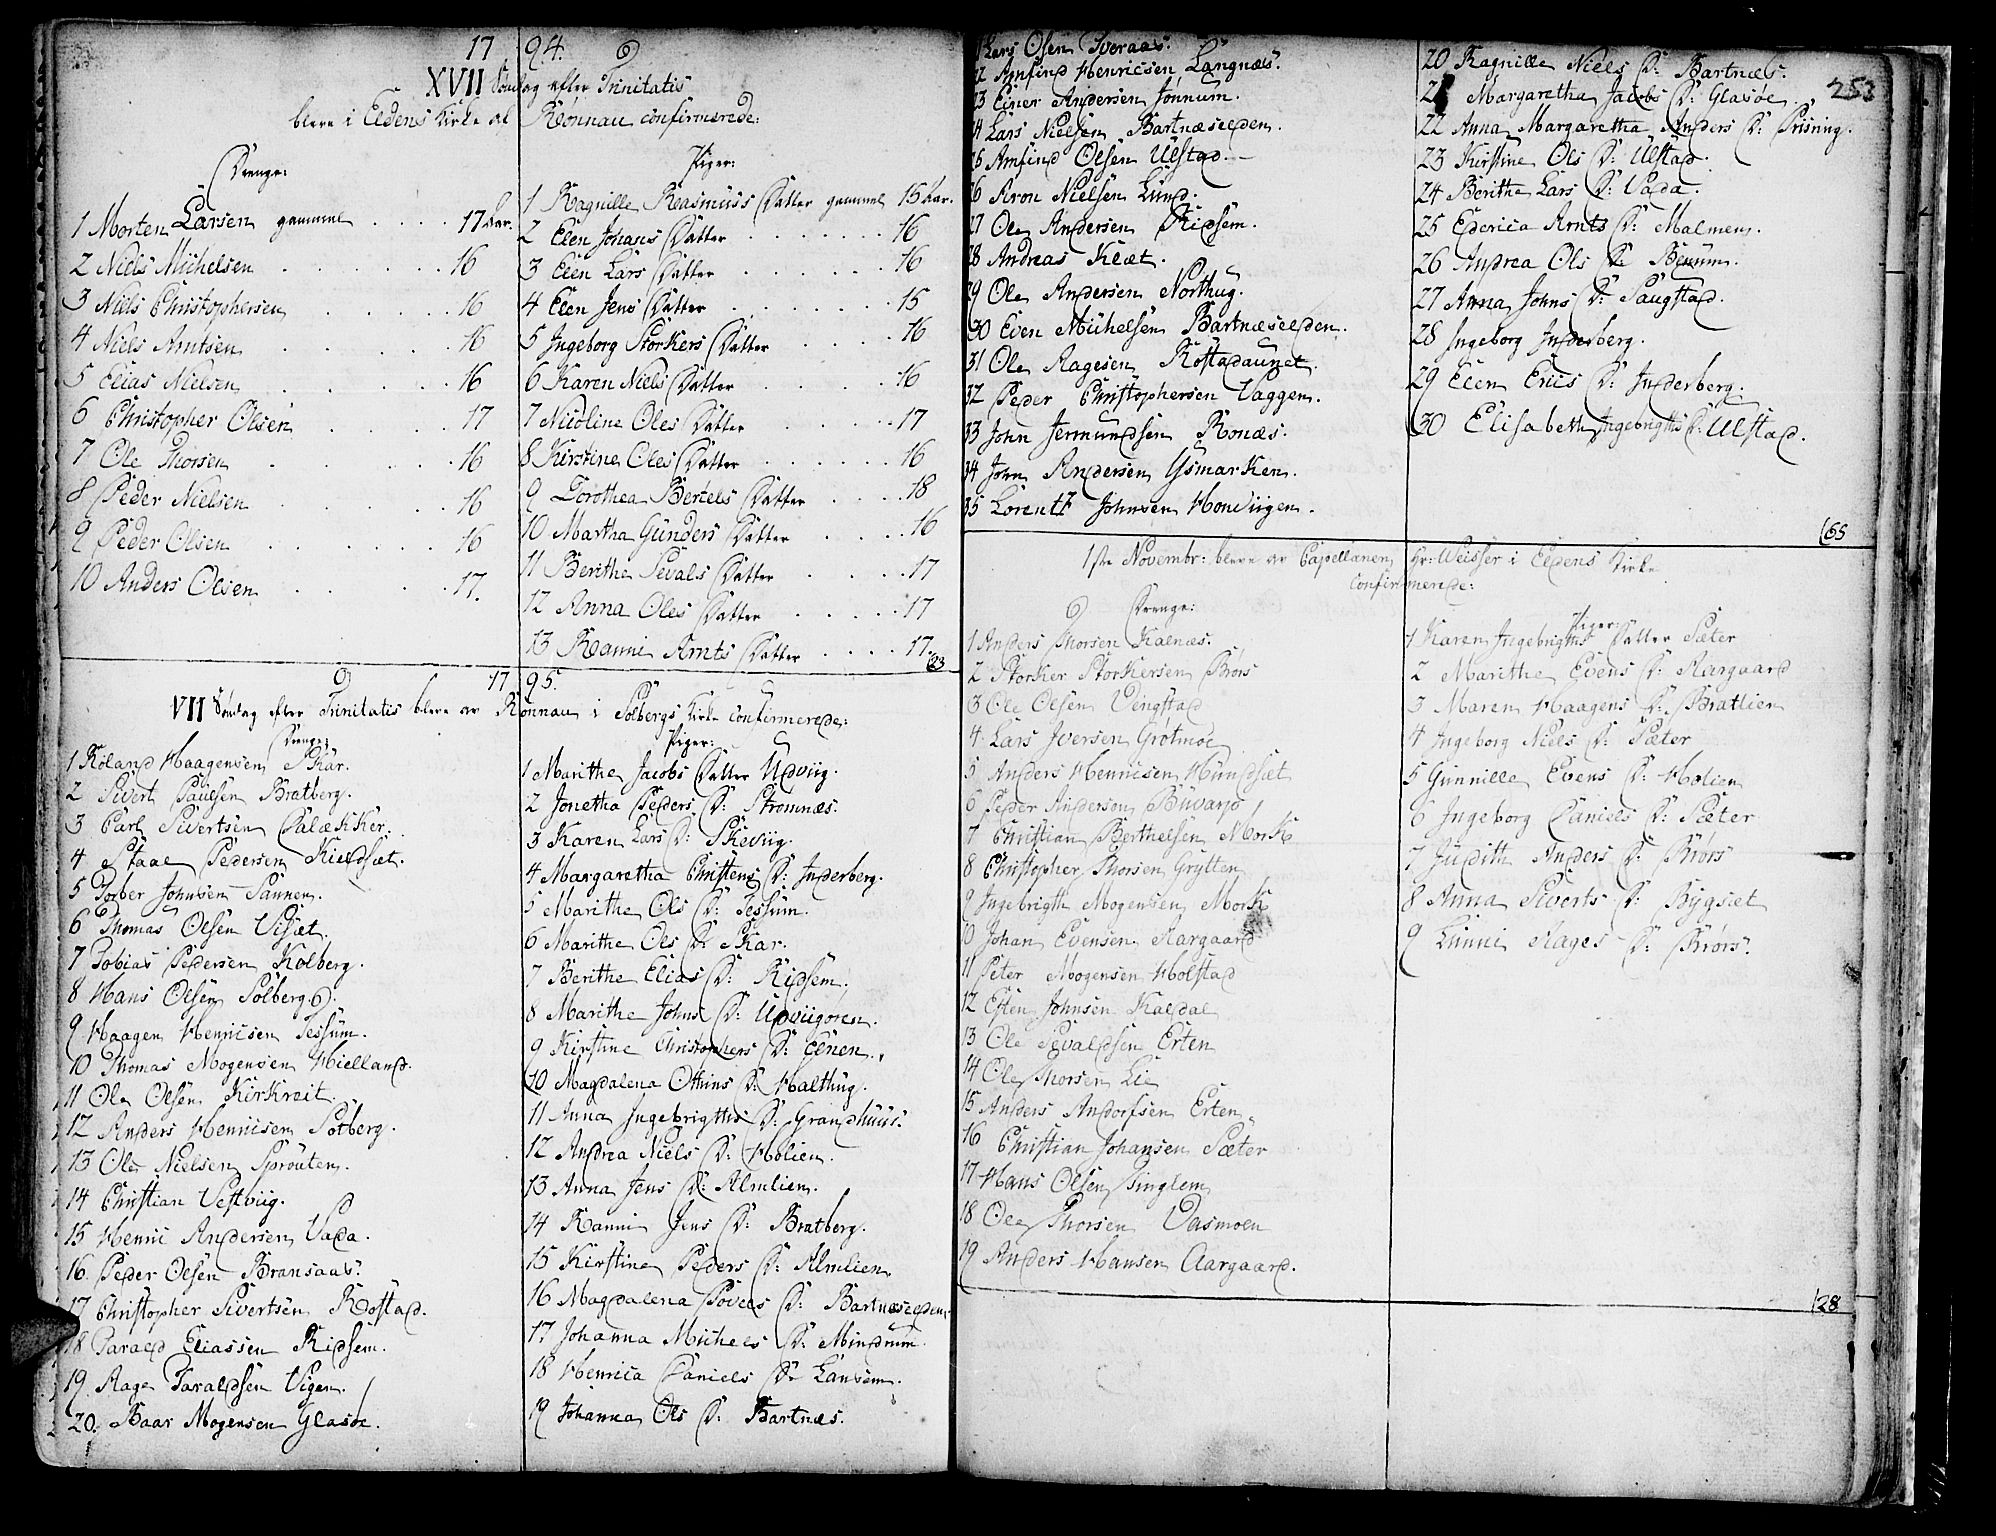 1794.
XVII Søndag efter Trinitatis
bleve i Eldens Kirke af Rønnau confirmerede:
Drenge:
1 Morten Larsen gammel . . . . 17 Aar.
2 Niels Michelsen . . . . . . 16
3 Niels Christophersen . . . . . 16
4 Niels Arntsen . . . . . . 16
5 Elias Nielsen . . . . . . 16
6 Christopher Olsen . . . . 17
7 Ole Thorsen . . . . . . 16
8 Peder Nielsen . . . . . . 16
9 Peder Olsen . . . . . . 16
10 Anders Olsen . . . . . 17.
Piger:
1 Ragnille Rasmuss Datter gammel 15 Aar.
2 Elen Johans Datter . . . . . . 16
3 Elen Lars Datter . . . . . . 16
4 Elen Jens Datter . . . . . . 15
5 Ingeborg Storkers Datter . . . . 16
6 Karen Niels Datter . . . . . 16
7 Nicoline Oles Datter . . . . . 17
8 Kirstine Oles Datter . . . . . 16
9 Dorothea Bertels Datter . . . . 18
10 Martha Gunders Datter . . . . 16
11 Berithe Sevals Datter . . . . . 17
12 Anna Oles Datter . . . . . 17
13 Ranni Arnts Datter . . . . 17.
23
1795.
VII Søndag efter Trinitatis bleve av Rønnau i Solbergs Kirke confirmerede:
Drenge:
1 Roland Haagensen Skar.
2 Sivert Paulsen Bratberg.
3 Carl Sivertsen
4 Staal Pedersen Kieldsæt.
5 Torber Johnsen Sannen.
6 Thomas Olsen Visæt.
7 Tobias Pedersen Kolberg.
8 Hans Olsen Solberg.
9 Haagen Henricsen Tessum.
10 Thomas Mogensen Hielland.
11 Ole Olsen Kirkreit.
12 Anders Henricsen Solberg.
13 Ole Nielsen Sprouten.
14 Christian Vestviig.
15 Henric Andersen Vada.
16 Peder Olsen Bransaas.
17 Christopher Sivertsen Rostad.
18 Tarald Eliassen Ridsem.
19 Aage Taraldsen Vigen.
20. Baar Mogensen Glasøe.
Piger:
1 Marithe Jacobs Datter Udviig.
2 Jonetha Peders D: Stromnæs.
3 Karen Lars D: Skeviig.
4 Margaretha Christens D: Inderberg.
5 Marithe Ols D: Tessum.
6 Marithe Ols D: Skar.
7 Berithe Elias D: Ridsem.
8 Marithe Johns D: Udviigoren.
9 Kirstine Christophers D: Elnen.
10 Magdalena Ottins D: Halthug.
11 Anna Ingebrigths D: Grandhuus.
12 Andrea Niels D: Holien.
13 Anna Jens D: Almlien.
14 Ranni Jens D: Bratberg.
15 Kirstine Peders D: Almlien.
16 Magdalena Povels D: Bartnæselden.
17 Johanna Michels D: Mindrum.
18 Henrica Daniels D: Lansem.
19 Johanna Ols D: Bartnæs.
21 Lars Olsen Sveraas.
22 Amfind Henricsen Langnæs.
23 Einer Andersen Jønnum.
24 Lars Nielsen Bartnæselden.
25 Amfind Olsen Ulstad.
26 Aron Nielsen Lund.
27 Ole Andersen Ridsem.
28 Andreas Klæt.
29 Ole Andersen Northug.
30 Even Michelsen Bartnæselden.
31 Ole Aagesen Rostadaunet.
32 Peder Christophersen Vaggen.
33 John Jermundsen Ronæs.
34 John Andersen Ysmarken.
35 Lorentz Johnsen Honviigen.
253
20 Ragnille Niels D: Bartnæs.
21 Margaretha Jacobs D: Glasøe.
22 Anna Margaretha Anders D: Prisning.
23 Kirstine Ols D: Ulstad.
24 Berithe Lars D: Vada.
25 Ederica Arnts D: Malmen.
26 Andrea Ols D:
27 Anna Johns D: Saugstad.
28 Ingeborg Inderberg.
29 Elen Erics D: Inderberg.
30 Elisabeth Ingebrigths D: Ulstad.
65
1ste Novembr: bleve av Capellanen Hr: Weisser i Eldens Kirke
confirmerede:
Drenge:
1 Anders Thorsen Kalnæs.
2 Storker Storkersen Brørs
3 Ole Olsen Vengstad
4 Lars Iversen Grotmoe
5 Anders Henricsen Hundsæt
6 Peder Andersen Buvarp
7 Christian Berthelsen Mork
8 Christopher Thorsen Grytten
9 Ingebrigth Mogensen Mork
10 Johan Evensen Aargaard
11 Peter Mogensen Holstad
12 Esten Johnsen Kaldal
13 Ole Sevaldsen Erten
14 Ole Thorsen Lie
15 Anders Andorfsen Erten
16 Christian Johansen Sæter
17 Hans Olsen Tinglem
18 Ole Thorsen Dasmoen
19 Anders Hansen Aargaard.
Piger:
1 Karen Ingebrigths Datter Sæter
2 Marithe Evens D: Aargaard
3 Maren Haagens D: Bratlien
4 Ingeborg Niels D: Sæter
5 Gunnille Evens D: Holien
6 Ingeborg Daniels D: Sæter
7 Judith Anders D: Brørs
8 Anna Siverts D: Bygsæt
9 Linni Aages D: Brørs.
28